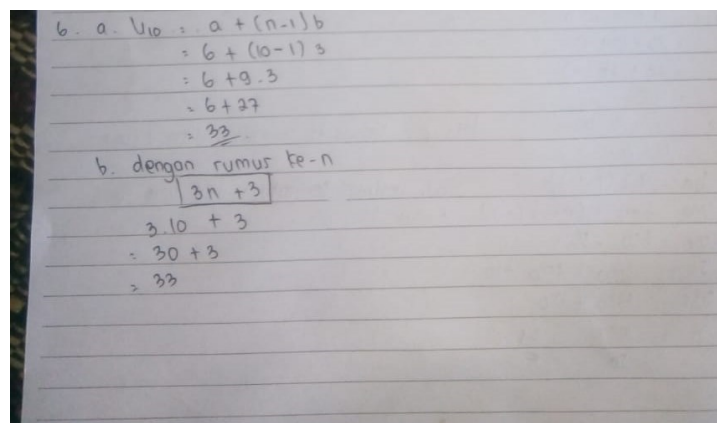 6. a. U10 = a + (n-1) b
= 6 + (10-1) 3
= 6 + 9.3
= 6 + 27
= 33
b. dengan rumus ke-n
3n + 3
3.10 + 3
= 30 + 3
= 33